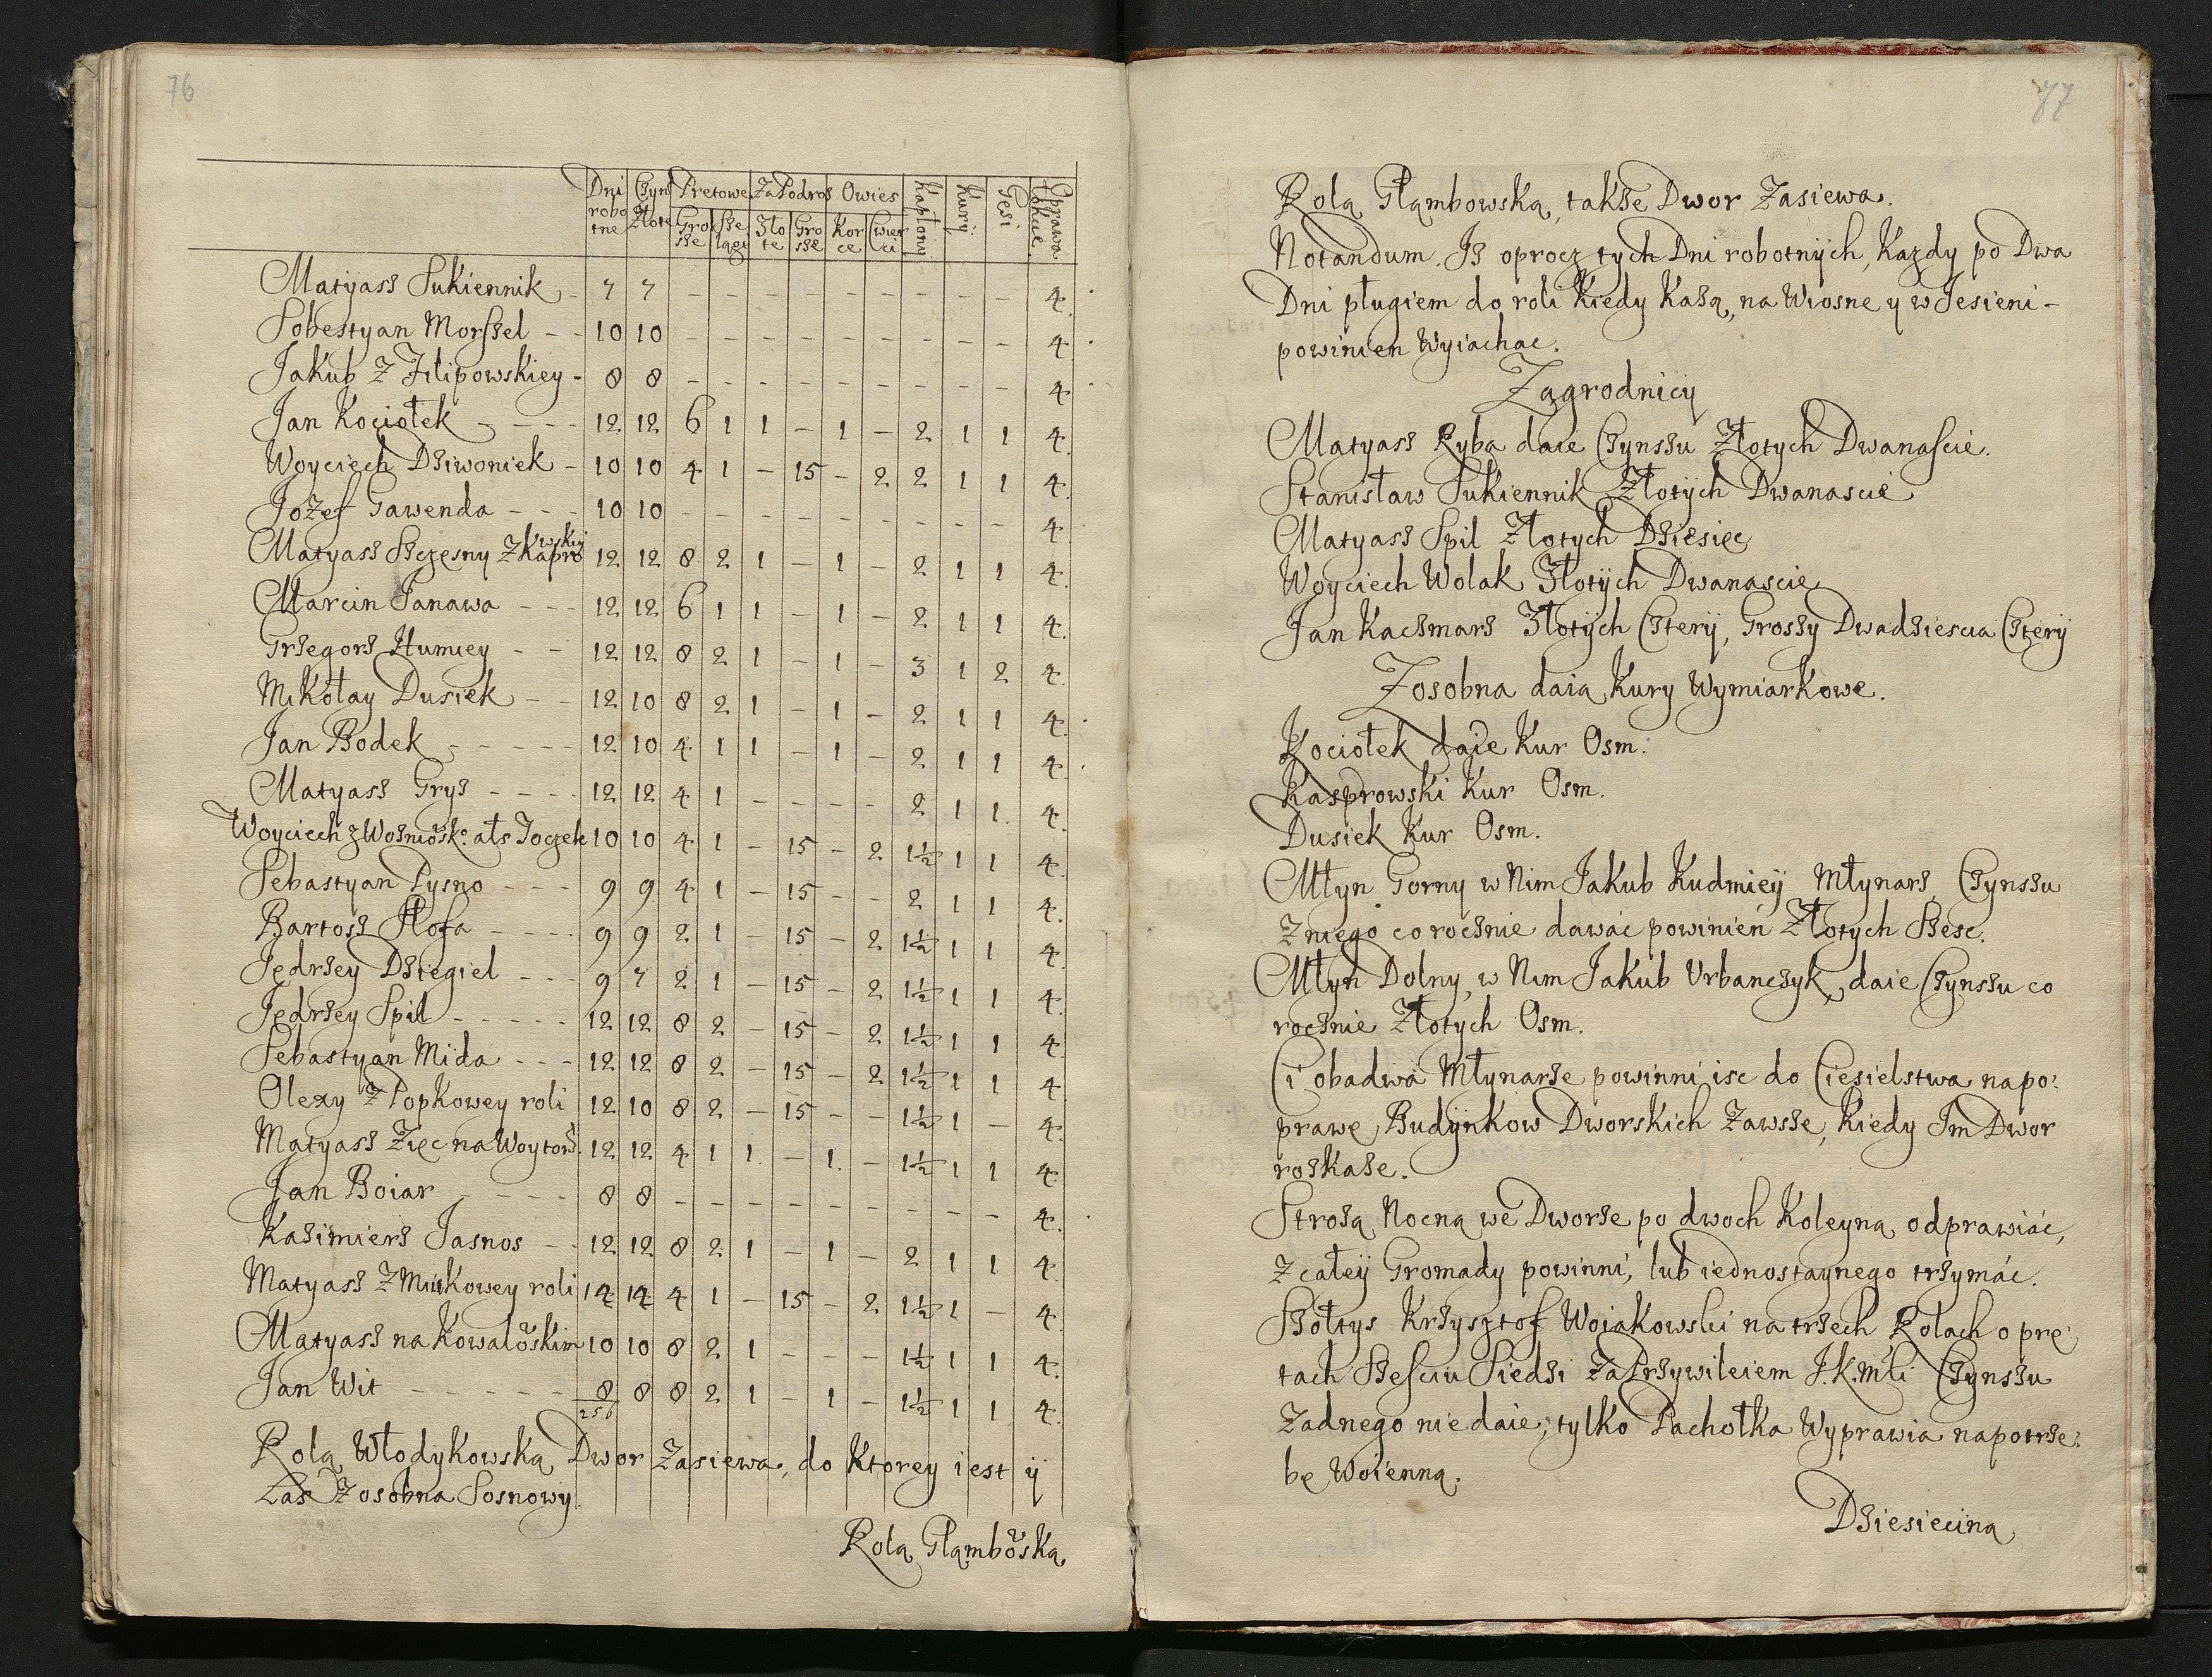 76
Dni robotne | Czynsz Złote | Pretowe Grosze | Szelagi | Za Podroż Złote | Grosze | Owies Korce | Cwierci | Kapłony | Kury | Gęsi | Oprawa Łokcie
Matyasz Sukiennik - 7 7 - - - - - - - - - 4.
Sobestyan Morszel - - 10 10 - - - - - - - - - 4.
Jakub Z Filipowskiey - 8 8 - - - - - - - - - 4
Jan Kociołek - - - - 12 12 6 1 1 - 1 - 2 1 1 4.
Woyciech Dziwoniek - 10 10 4 1 - 15 - 2 2 1 1 4.
Jozef Gawenda - - - 10 10 - - - - - - - - - 4.
Matyasz Szczęsny Z Kaprowskiey 12 12 8 2 1 - 1 - 2 1 1 4.
Marcin Janawa - - - 12 12 6 1 1 - 1 - 2 1 1 4.
Grzegorz Humiey - - 12 12 8 2 1 - 1 - 3 1 2 4.
Mikołay Dusiek - - 12 10 8 2 1 - 1 - 2 1 1 4.
Jan Bodek - - - - - 12 10 4 1 1 - 1 - 2 1 1 4.
Matyasz Grys - - - - 12 12 4 1 - - - - 2 1 1. 4.
Woyciech z Woźniosko: als Joczek 10 10 4 1 - 15 - 2 1½ 1 1 4.
Sebastyan Pysno - - - 9 9 4 1 - 15 - - 2 1 1 4.
Bartosz Słofa - - - - 9 9 2 1 - 15 - 2 1½ 1 1 4.
Jędrzey Dziegiel - - - 9 7 2 1 - 15 - 2 1½ 1 1 4.
Jędrzey Spil - - - - - 12 12 8 2 - 15 - 2 1½ 1 1 4.
Sebastyan Mida - - - 12 12 8 2 - 15 - 2 1½ 1 1 4.
Olexy Z Popkowey roli 12 10 8 2 - 15 - - 1½ 1 - 4.
Matyasz Zięc na Woytow: 12 12 4 1 1. - 1. - 1½ 1 1 4.
Jan Boiar - - - - 8 8 - - - - - - - - - 4.
Kazimierz Jasnos - - 12 12 8 2 1 - 1 - 2 1 1 4.
Matyasz Z Miskowey roli 14 14 4 1 - 15 - 2 1½ 1 - 4.
Matyasz na Kowalowskim 10 10 8 2 1 - - - 1½ 1 1 4.
Jan Wit - - - - - - 8 8 8 2 1 - 1 - 1½ 1 1 4.
256
Rolą Włodykowską Dwor Zasiewa, do Ktorey iest ÿ
Las Zosobna Sosnowy.
Rolą Głambowską
77
Rolą Głambowską, także Dwor Zasiewa.
Notandum. Iż oprocz tych Dni robotnÿch, Kazdy po Dwa
Dni pługiem do roli Kiedy Każą, na Wiosne y w Iesieni -
powinien Wyiachac.
Zagrodnicy
Matyasz Ryba daie Czynszu Złotych Dwanascie.
Stanisław Sukiennik Złotÿch Dwanascie
Matyasz Spil Złotych Dziesięc
Woyciech Wolak Złotÿch Dwanascie
Jan Kaczmarz Złotÿch Czterÿ, Groszy Dwadziescia Czterÿ
Zosobna daią Kury Wymiarkowe.
Kociołek daie Kur Osm.
Kasprowski Kur Osm.
Dusiek Kur Osm.
Młyn Gorny w Nim Jakub Kudmiey Młynarz, Czynszu
z niego corocznie dawac powinien Złotych Szesc.
Młyn Dolny, w Nim Jakub Urbanczyk, daie Czynszu co
rocznie Złotych Osm.
Ci obadwa Młynarze powinni isc do Ciesielstwa napo:
prawę Budynkow Dworskich Zawsze, Kiedy Im Dwor
roskaże.
Strożą Nocną we Dworze po dwoch Koleyną odprawiác,
z całeÿ Gromady powinni, lub iednostaynego trzymác.
Szołtys Krzysztof Woiakowski na trzech Rolach o prę:
tach Szesciu Siedzi Za Przywileiem J.K.Mci Czynszu
Żadnego nie daie, tylko Pachołka Wyprawia na potrze:
bę Woienną.
Dziesiecina